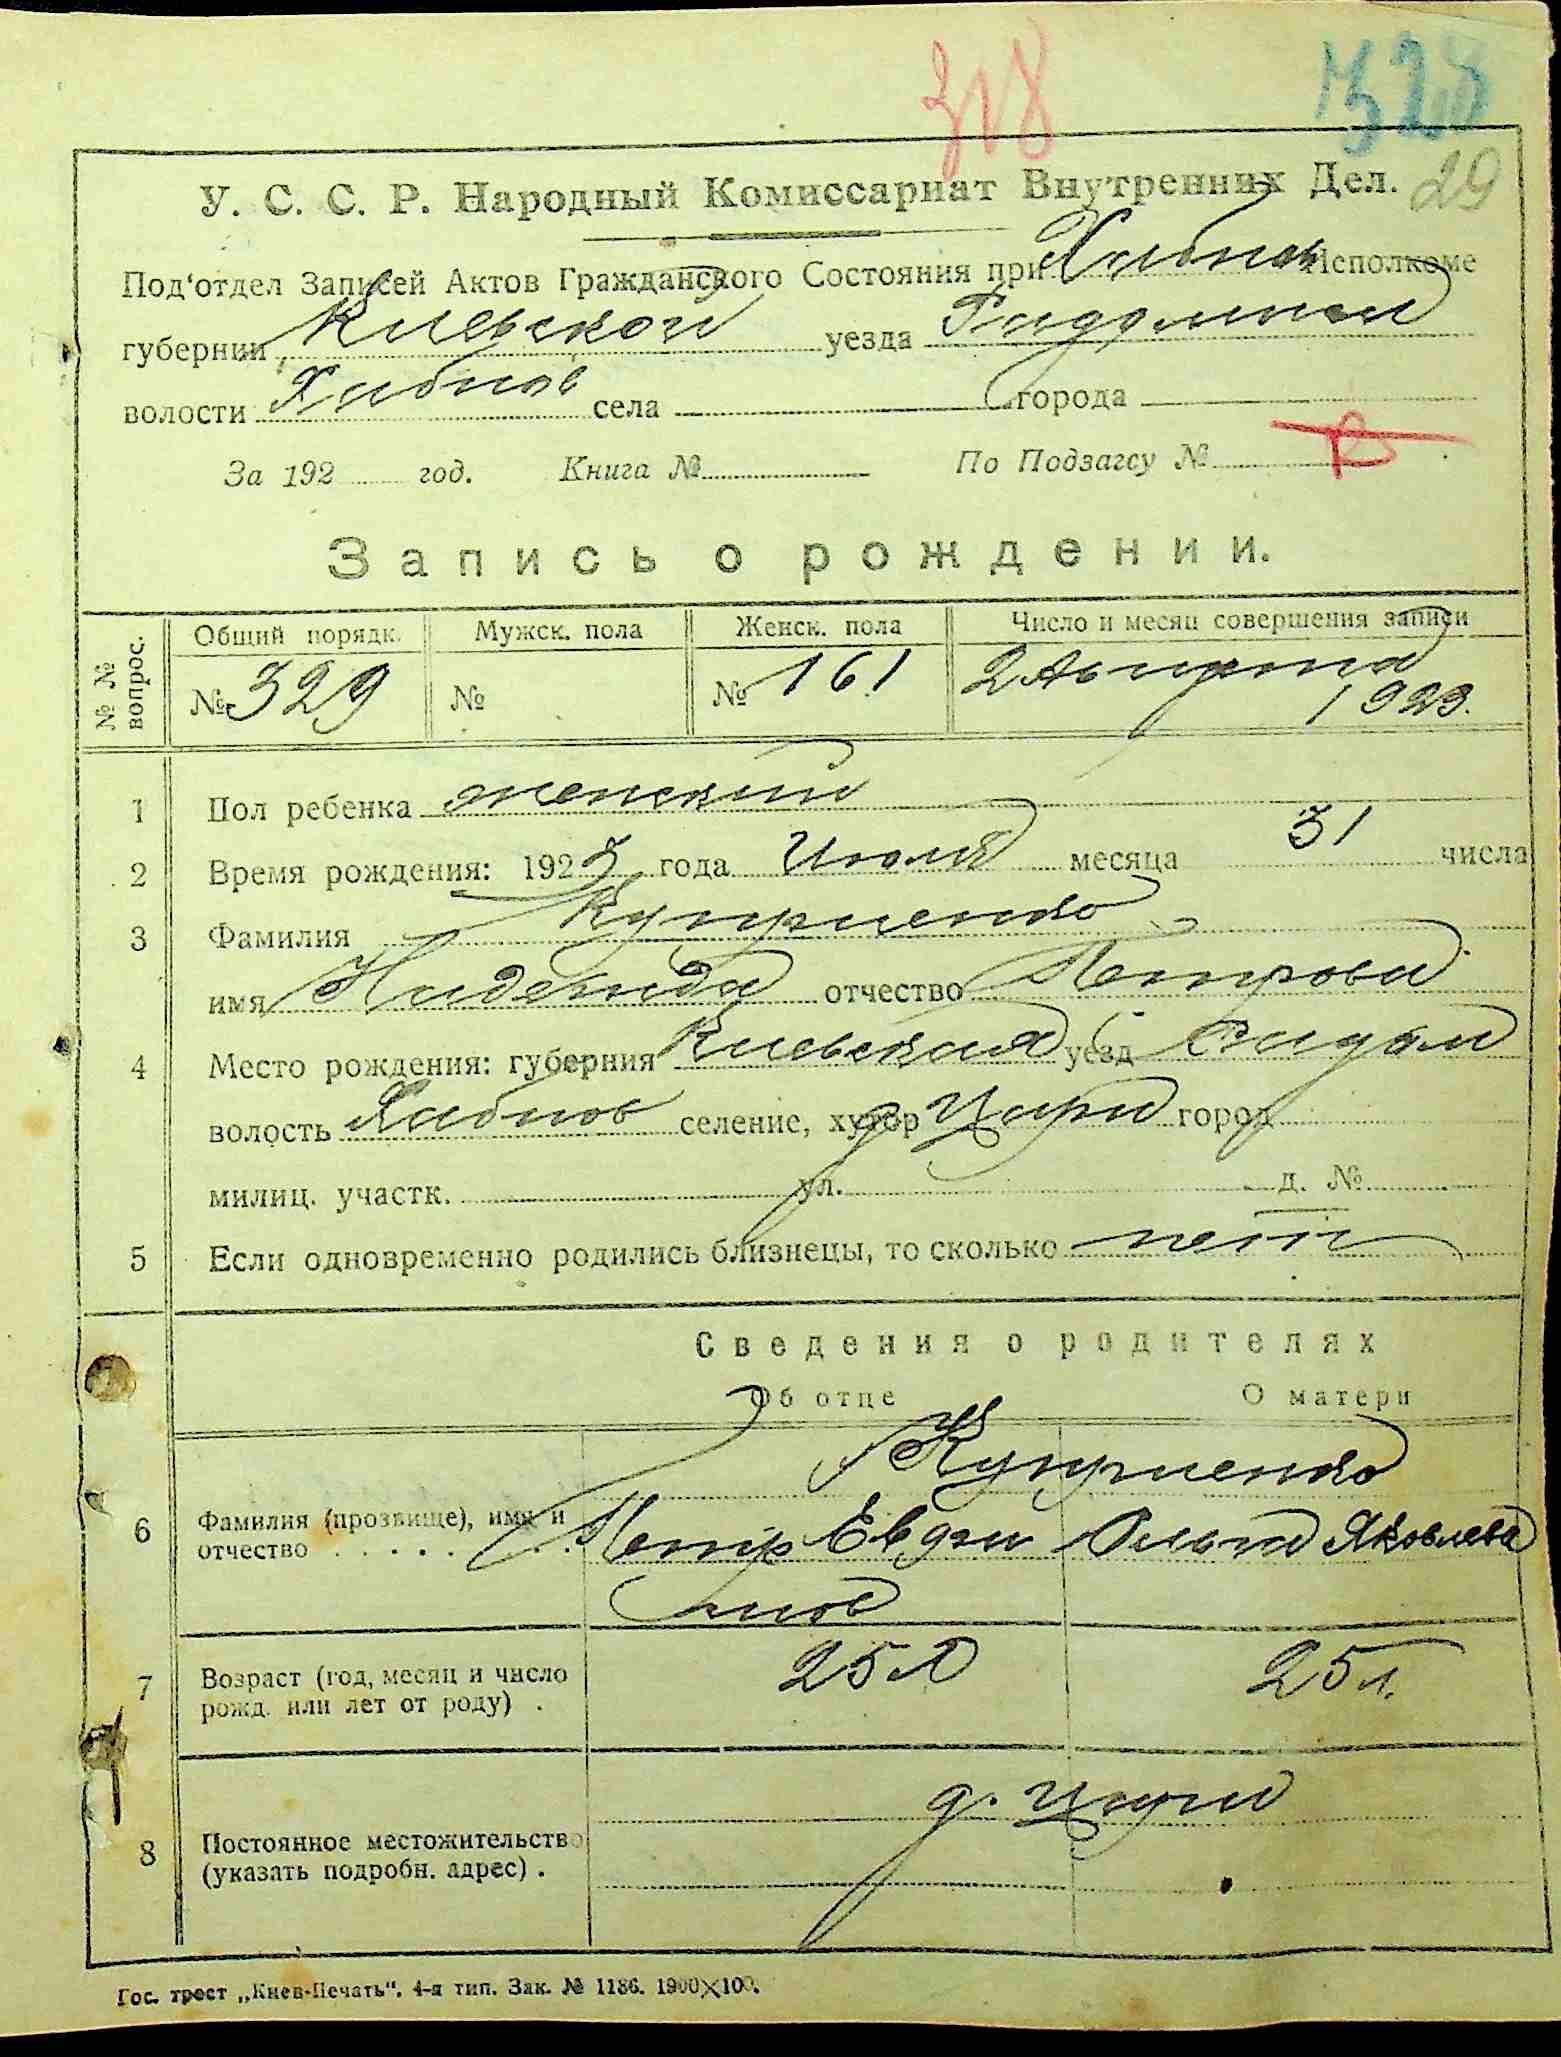 318
328
29
У. С. С. Р. Народный Комиссариат Внутренних Дел.
Под'отдел Записей Актов Гражданского Состояния при Хабнов Исполкоме
губернии Киевской уезда
волости Хабнов села города
За 192 год. Книга № По Подзагсу №
Запись о рождении.
№ № вопрос. Общий порядк. Мужск. пола Женск. пола Число и месяц совершения записи
№ 329 № № 161 2 Августа
1923.
1 Пол ребенка женский
2 Время рождения: 1923 года Июля месяца 31 числа
3 Фамилия
имя Надежда отчество Петрова
4 Место рождения: губерния Киевская уезд Радом
волость Хабнов селение, хутор д город
милиц. участк. ул. д. №
5 Если одновременно родились близнецы, то сколько нет
Сведения о родителях
Об отце О матери
6 Фамилия (прозвище), имя и
отчество Петр Ольга Яковлева
7 Возраст (год, месяц и число
рожд. или лет от роду) . 25 л 25 л.
8 Постоянное местожительство
(указать подробн. адрес) . д.
Гос. трест „Киев-Печать". 4-я тип. Зак. № 1186. 1900×100.